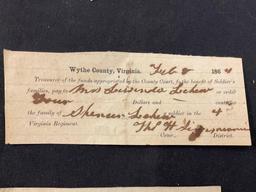 Wythe County, Virginia. Feb 8 1864
Treasurer of the funds appropriated by the County Court, to the benefit of Soldier's
families, pay to Mrs Lucinda Lockew or order
Four Dollars and cents
the family of Spencer Lockew a soldier in the 4
Virginia Regiment. Tho H
Com'r, District.